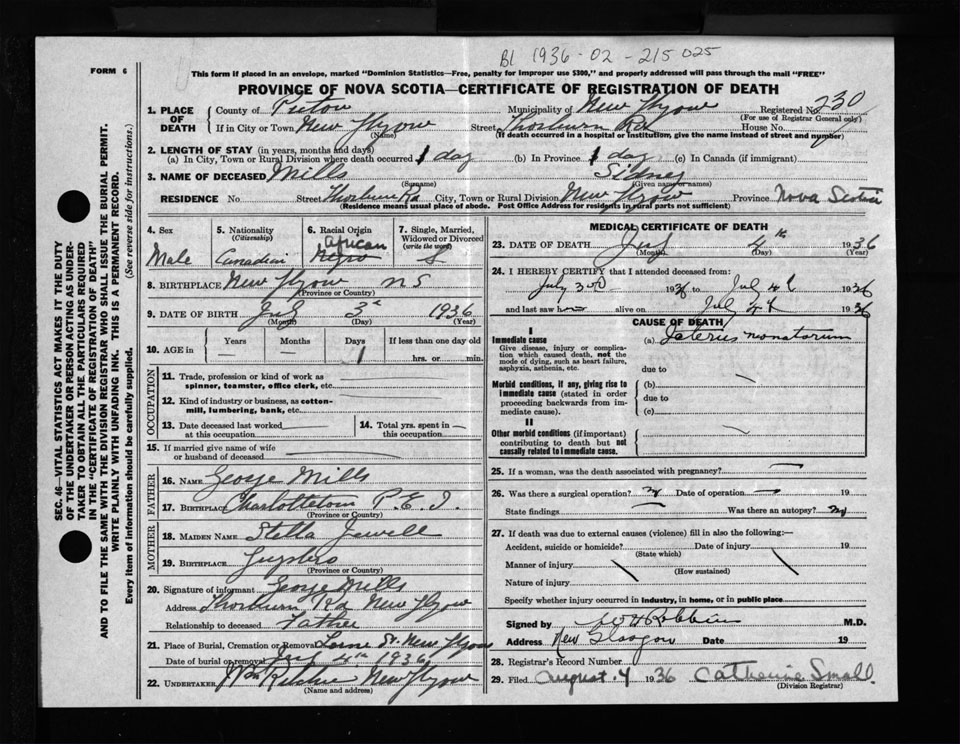 B1 1936-02-215025
FORM 6
This form if placed in an envelope, marked "Dominion Statistics—Free, penalty for improper use $300," and properly addressed will pass through the mail "FREE"
PROVINCE OF NOVA SCOTIA—CERTIFICATE OF REGISTRATION OF DEATH
SEC. 46—VITAL STATISTICS ACT MAKES IT THE DUTY
OF THE UNDERTAKER OR PERSON ACTING AS UNDER-
TAKER TO OBTAIN ALL THE PARTICULARS REQUIRED
IN THE "CERTIFICATE OF REGISTRATION OF DEATH"
AND TO FILE THE SAME WITH THE DIVISION REGISTRAR WHO SHALL ISSUE THE BURIAL PERMIT.
WRITE PLAINLY WITH UNFADING INK. THIS IS A PERMANENT RECORD.
Every item of information should be carefully supplied. (See reverse side for instructions.)
1. PLACE OF DEATH County of Pictou Municipality of New Registered No. 230
(For use of Registrar General only)
If in City or Town New Street Thorburn Rd House No.
(Name) (If death occurred in a hospital or institution, give the name instead of street and number)
2. LENGTH OF STAY (in years, months and days)
(a) In City, Town or Rural Division where death occurred 1 day (b) In Province 1 day (c) In Canada (if immigrant)
3. NAME OF DECEASED Mills Sidney
(Surname) (Given name or names)
RESIDENCE No. Street Thorburn Rd City, Town or Rural Division New Province Nova Scotia
(Residence means usual place of abode. Post Office Address for residents in rural parts not sufficient)
4. Sex Male
5. Nationality (Citizenship) Canadian
6. Racial Origin African Negro
7. Single, Married, Widowed or Divorced (write the word) S
8. BIRTHPLACE New N S
(Province or Country)
9. DATE OF BIRTH July 3rd 1936
(Month) (Day) (Year)
10. AGE in Years — Months — Days 1 If less than one day old hrs. or min.
OCCUPATION
11. Trade, profession or kind of work as spinner, teamster, office clerk, etc.
12. Kind of industry or business, as cotton-mill, lumbering, bank, etc.
13. Date deceased last worked at this occupation
14. Total yrs. spent in this occupation
15. If married give name of wife or husband of deceased
FATHER
16. NAME George Mills
17. BIRTHPLACE Charlottetown P.E.I.
(Province or Country)
MOTHER
18. MAIDEN NAME Stella Jewell
19. BIRTHPLACE
(Province or Country)
20. Signature of informant George Mills
Address Thorburn Rd New
Relationship to deceased Father
21. Place of Burial, Cremation or Removal Lorne St. New
Date of burial or removal July 4th 1936
22. UNDERTAKER Ritchie New
(Name and address)
MEDICAL CERTIFICATE OF DEATH
23. DATE OF DEATH July 4th 1936
(Month) (Day) (Year)
24. I HEREBY CERTIFY that I attended deceased from:
July 3rd 1936 to July 4th 1936
and last saw h alive on July 4th 1936
CAUSE OF DEATH
I
Immediate cause
Give disease, injury or complication which caused death, not the mode of dying, such as heart failure, asphyxia, asthenia, etc.
(a) Icterus neonatorum
due to
Morbid conditions, if any, giving rise to immediate cause (stated in order proceeding backwards from immediate cause).
(b)
due to
(c)
II
Other morbid conditions (if important) contributing to death but not causally related to immediate cause.
25. If a woman, was the death associated with pregnancy?
26. Was there a surgical operation? Date of operation 19
State findings Was there an autopsy?
27. If death was due to external causes (violence) fill in also the following:—
Accident, suicide or homicide? Date of injury 19
(State which)
Manner of injury
(How sustained)
Nature of injury
Specify whether injury occurred in industry, in home, or in public place
Signed by Robbins M.D.
Address New Glasgow Date 19
28. Registrar's Record Number
29. Filed August 4 1936 Catherine Small
(Division Registrar)